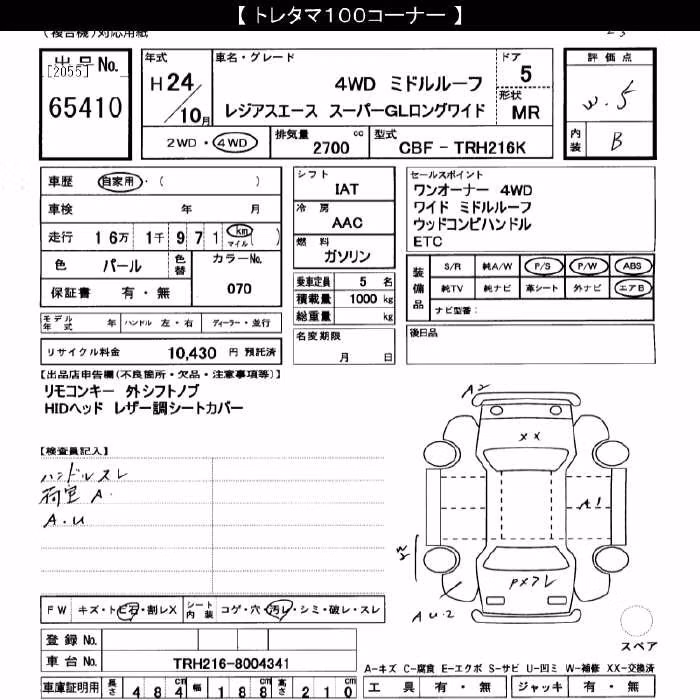 【 トレタマ100コーナー 】
(複合機)対応用紙
出品No.
[2055]
65410
年式
H24/10月
車名・グレード
4WD ミドルルーフ
レジアスエース スーパーGLロングワイド
ドア
5
形状
MR
2WD・4WD
排気量
2700 cc
型式
CBF - TRH216K
評価点
W.5
内装
B
車歴 自家用・( )
車検 年 月
走行 16万 1千 971 km マイル ( )
色 パール 色替
カラーNo.
070
保証書 有・無
シフト
IAT
冷房
AAC
燃料
ガソリン
乗車定員 5 名
積載量 1000 kg
総重量 kg
セールスポイント
ワンオーナー 4WD
ワイド ミドルルーフ
ウッドコンビハンドル
ETC
装備品
S/R 純A/W P/S P/W ABS
純TV 純ナビ 革シート 外ナビ エアB
ナビ型番:
モデル年式 年 ハンドル 左・右 ディーラー・並行
リサイクル料金 10,430 円 預託済
名変期限
月 日
後日品
【出品店申告欄(不良箇所・欠品・注意事項等)】
リモコンキー 外シフトノブ
HIDヘッド レザー調シートカバー
【検査員記入】
ハンドルスレ
荷室 A.
A.U
A2
XX
A1
W2
PXフレ
AU.2
スペア
FW キズ・トビ石・割レX
シート内装 コゲ・穴・汚レ・シミ・破レ・スレ
登録No.
車台No. TRH216-8004341
車庫証明用 長さ 484 cm 幅 188 cm 高さ 210 cm
A-キズ C-腐食 E-エクボ S-サビ U-凹ミ W-補修 XX-交換済
工具 有・無 ジャッキ 有・無